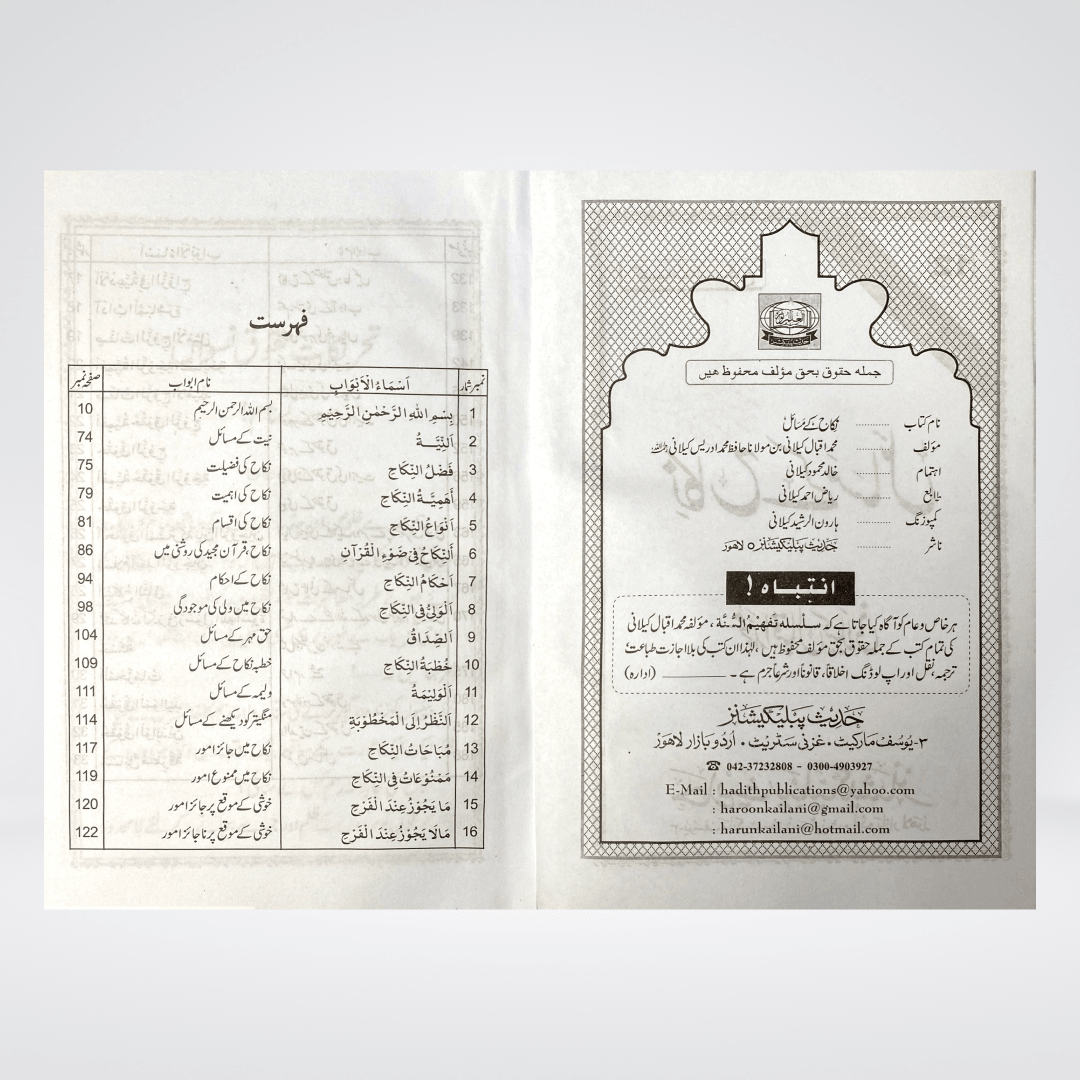 جملہ حقوق بحق مؤلف محفوظ ھیں
نام کتاب .......... نکاح کے مسائل
مؤلف .......... محمد اقبال کیلانی بن مولانا حافظ محمد ادریس کیلانی رحمہ اللہ
اہتمام .......... خالد محمود کیلانی
طابع .......... ریاض احمد کیلانی
کمپوزنگ .......... ہارون الرشید کیلانی
ناشر .......... حدیث پبلیکیشنز ٥ لاھور
انتباہ !
ہر خاص و عام کو آگاہ کیا جاتا ہے کہ سلسلہ تفہیم السُّنَّة ، مؤلفہ محمد اقبال کیلانی
کی تمام کتب کے جملہ حقوق بحق مؤلف محفوظ ہیں ،لہٰذا ان کتب کی بلا اجازت طباعت،
ترجمہ، نقل اور اپ لوڈنگ اخلاقاً، قانوناً اور شرعاً جرم ہے ۔ ــــــــــــ (ادارہ)
حدیث پبلیکیشنز
۳- یوسف مارکیٹ ۰ غزنی سٹریٹ ۰ اردو بازار لاھور
☎ 042-37232808 - 0300-4903927
E-Mail : hadithpublications@yahoo.com
: haroonkailani@gmail.com
: harunkailani@hotmail.com
فہرست
نمبر شمار اَسْمَاءُ الْاَبْوَابِ نام ابواب صفحہ نمبر
1 بِسْمِ اللهِ الرَّحْمٰنِ الرَّحِيْمِ بسم اللہ الرحمن الرحیم 10
2 اَلنِّيَّـــةُ نیت کے مسائل 74
3 فَضْلُ النِّكَاحِ نکاح کی فضیلت 75
4 أَهَمِيَّـةُ النِّكَاحِ نکاح کی اہمیت 79
5 اَنْوَاعُ النِّكَاحِ نکاح کی اقسام 81
6 اَلنِّكَاحُ فِىْ ضَوْءِ الْقُرْآنِ نکاح، قرآن مجید کی روشنی میں 86
7 اَحْكَامُ النِّكَاحِ نکاح کے احکام 94
8 اَلْوَلِىُّ فِى النِّكَاحِ نکاح میں ولی کی موجودگی 98
9 اَلصِّدَاقُ حق مہر کے مسائل 104
10 خُطْبَةُ النِّكَاحِ خطبہ نکاح کے مسائل 109
11 اَلْوَلِيْمَةُ ولیمہ کے مسائل 111
12 اَلنَّظَرُ اِلَى الْمَخْطُوْبَةِ منگیتر کو دیکھنے کے مسائل 114
13 مُبَاحَاتُ النِّكَاحِ نکاح میں جائز امور 117
14 مَمْنُوْعَاتٌ فِى النِّكَاحِ نکاح میں ممنوع امور 119
15 مَا يَجُوْزُ عِنْدَ الْفَرْحِ خوشی کے موقع پر جائز امور 120
16 مَالَا يَجُوْزُ عِنْدَ الْفَرْحِ خوشی کے موقع پر ناجائز امور 122